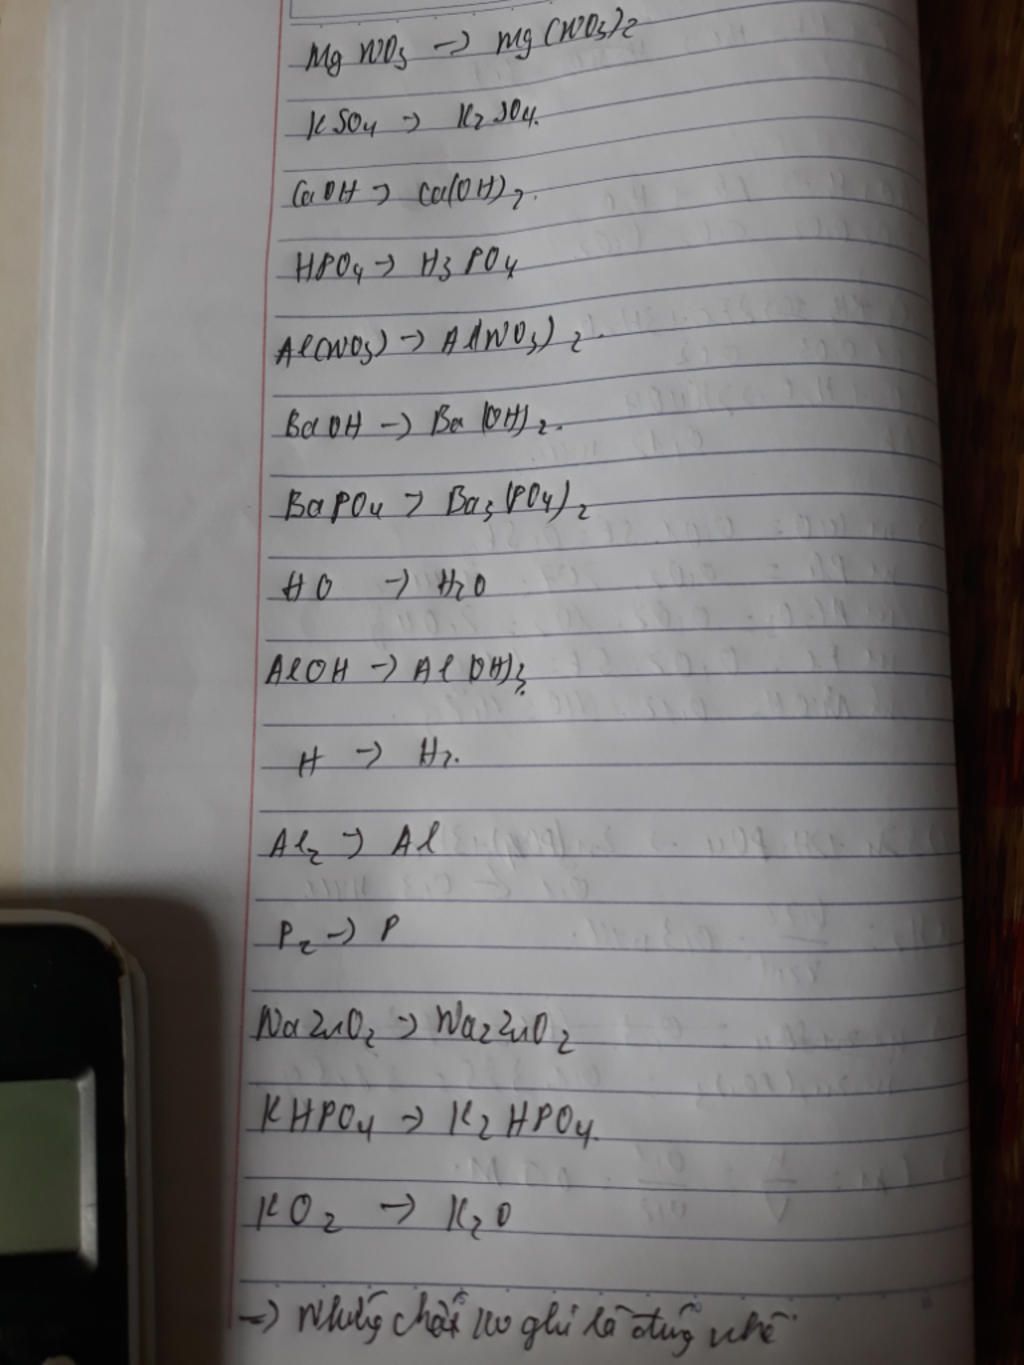 Mg NO3 → Mg(NO3)2
KSO4 → K2SO4.
CaOH → Ca(OH)2.
HPO4 → H3PO4
Al(NO3) → Al(NO3)2.
BaOH → Ba(OH)2.
BaPO4 → Ba3(PO4)2
HO → H2O
AlOH → Al(OH)3
H → H2.
Al2 → Al
P2 → P
NaZnO2 → Na2ZnO2
KHPO4 → K2HPO4.
KO2 → K2O
→ Những chất ghi là đúng nhé